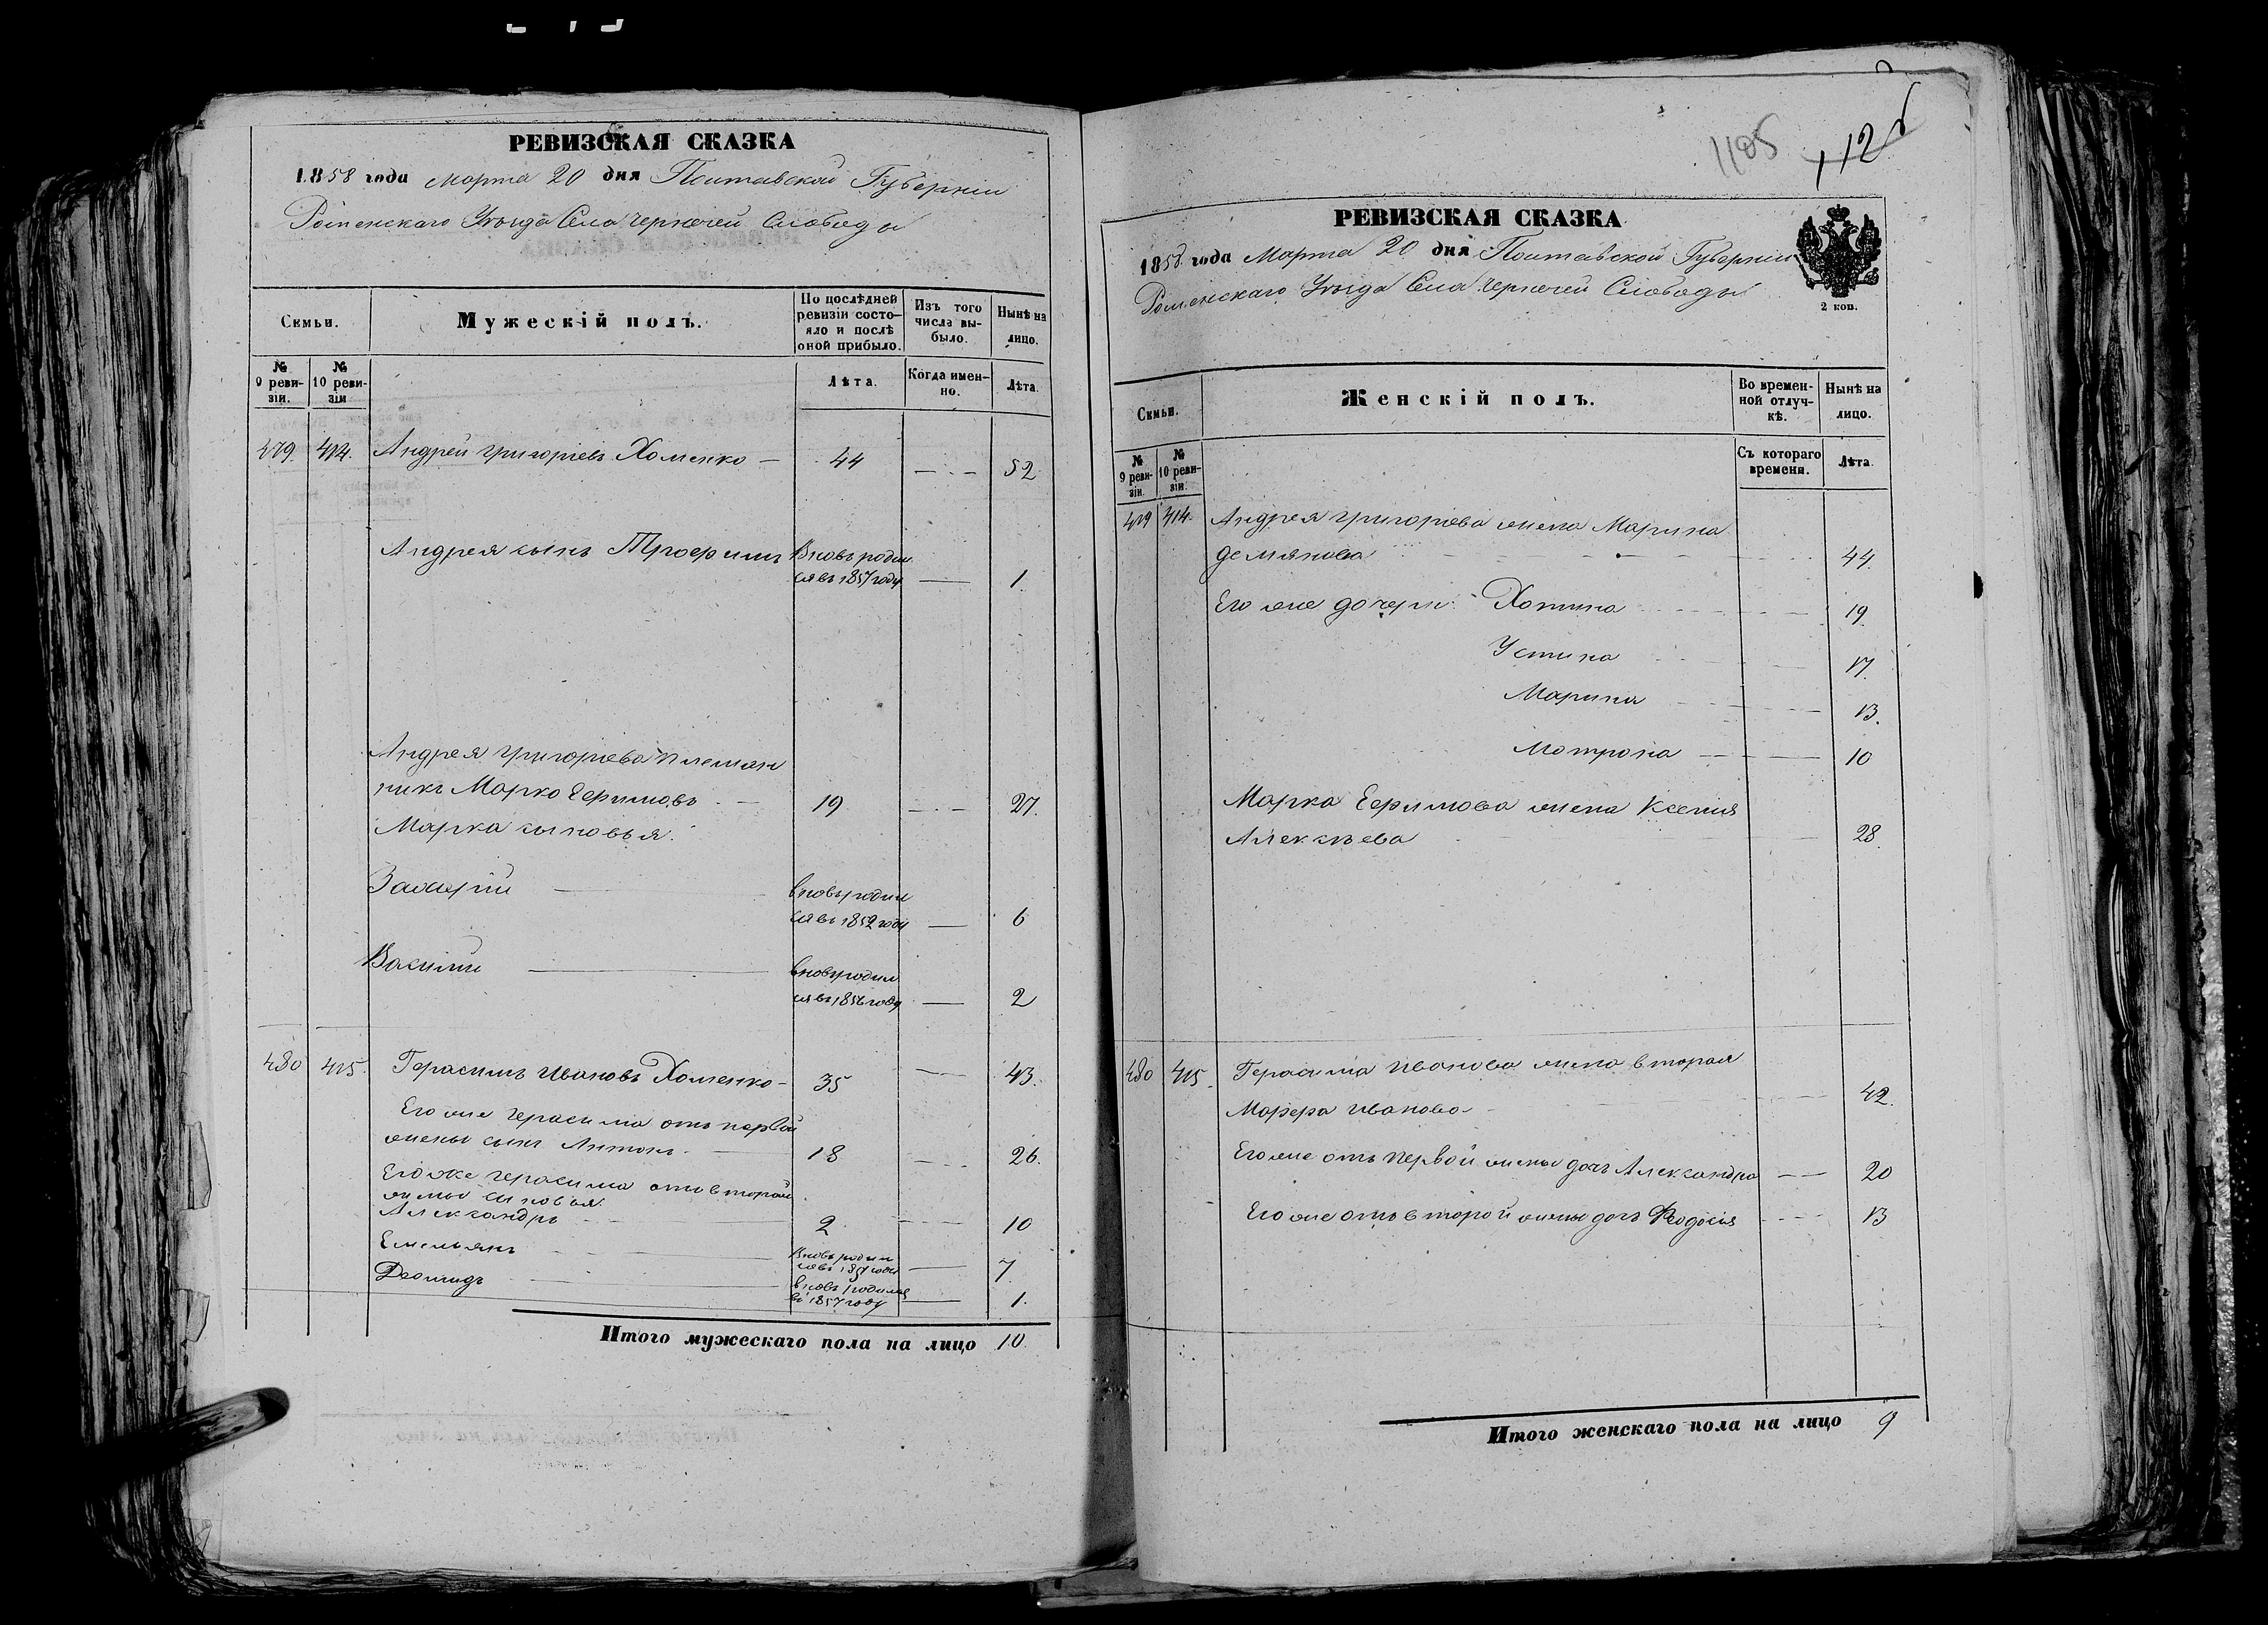 РЕВИЗСКАЯ СКАЗКА
1858 года Марта 20 дня Полтавской Губерніи
Роменскаго Уѣзда Села Чернечей Слободы
Семьи.
Мужескій полъ.
По послѣдней ревизіи состояло и послѣ оной прибыло.
Изъ того числа выбыло.
Нынѣ на лицо.
№ 9 ревизіи.
№ 10 ревизіи
Лѣта.
Когда именно.
Лѣта.
479. 414. Андрей Григоріевъ Хоменко — 44 — 52
Андрея сынъ Трофимъ Вновь родил
ся въ 1857 году — 1.
Андрея Григорьева племян
никъ Марко Ефимовъ — 19 — 27.
Марка сыновья:
Захарій — вновь родил
ся въ 1852 году — 6
Василій — вновь родил
ся въ 1856 году — 2
480 415. Герасимъ Ивановъ Хоменко — 35 — 43.
Его же Герасима отъ первой
жены сынъ Антонъ — 18 — 26.
Его же Герасима отъ второй
жены сыновья:
Александръ — 2 — 10
Емельянъ — Вновь родил
ся въ 1851 году — 7
Леонидъ — вновь родился
въ 1857 году — 1.
Итого мужескаго пола на лицо 10.
1105
112
РЕВИЗСКАЯ СКАЗКА
1858 года Марта 20 дня Полтавской Губерніи
Роменскаго Уѣзда Села Чернечей Слободы
2 коп.
Семьи.
Женскій полъ.
Во временной отлучкѣ.
Нынѣ на лицо.
№ 9 ревизіи.
№ 10 ревизіи.
Съ котораго времени.
Лѣта.
479 414. Андрея Григоріева жена Марина
Демянова — 44.
Его же дочери: Хотина — 19.
Устина — 17.
Марина — 13.
Мотрона — 10
Марка Ефимова жена Ксенія
Алексѣева — 28.
480 415. Герасима Иванова жена вторая
Марфа Иванова — 42.
Его же отъ первой жены дочь Александра — 20
Его же отъ второй жены дочь Феодосія — 13
Итого женскаго пола на лицо 9